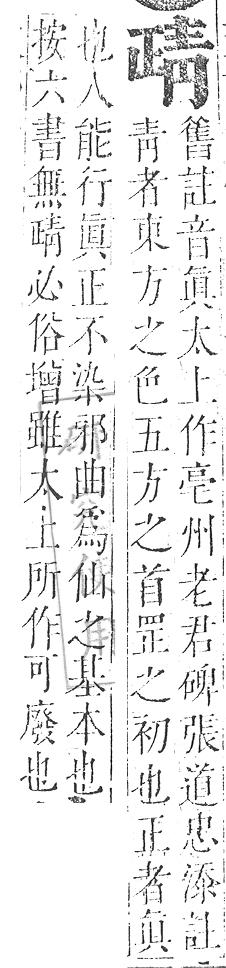 𤯝
舊註音眞太上作亳州老君碑張道忠添註
靑者東方之色五方之首罡之初也正者眞
也人能行眞正不染邪曲爲仙之基本也
按六書無䏁必俗增雖太上所作可廢也